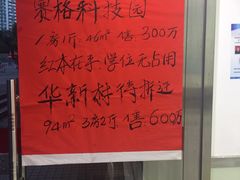 赛格科技园
1房1厅 46㎡ 售:300万
红本在手 学位无占用
华新村待拆迁
94㎡ 3房2厅 售:600万